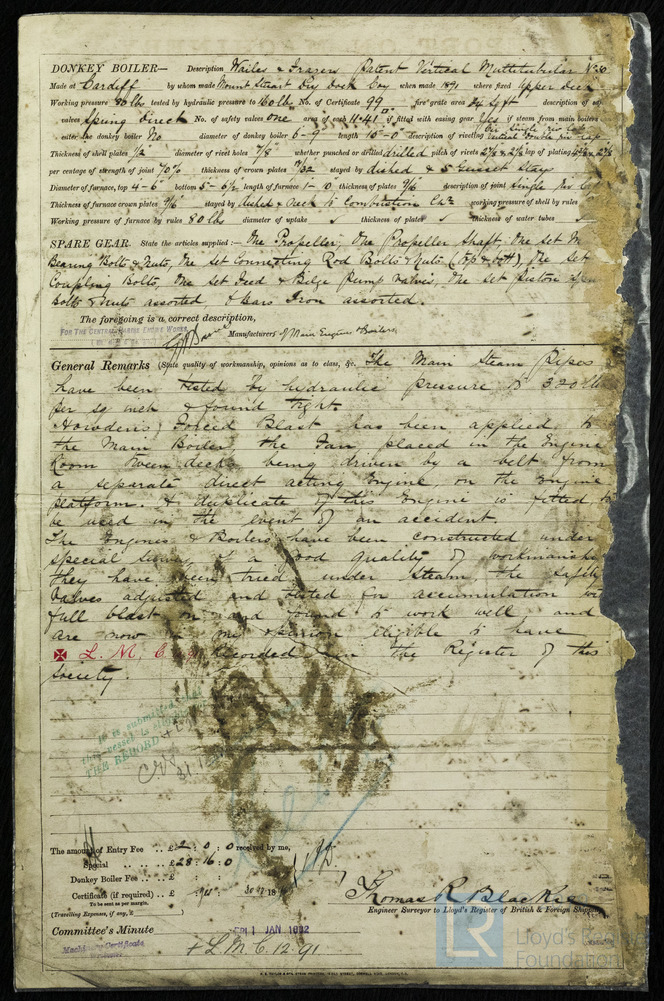 DONKEY BOILER— Description Wailes & Frasers Patent Vertical Multitubular No 50
Made at Cardiff by whom made Mount Stuart Dry Dock Coy when made 1891 where fixed Upper deck
Working pressure 80 lbs tested by hydraulic pressure to 160 lbs No. of Certificate 99 fire grate area 24 sq ft description of
valves Spring Direct No. of safety valves one area of each 11.41 □" if fitted with easing gear Yes if steam from main boilers
enter the donkey boiler No diameter of donkey boiler 6-9 length 15-0 description of riveting
Thickness of shell plates 1/2 diameter of rivet holes 7/8 whether punched or drilled drilled pitch of rivets lap of plating
per centage of strength of joint 70% thickness of crown plates 19/32 stayed by dished & 5 Gusset Stays
Diameter of furnace, top 4-6 bottom length of furnace thickness of plates 9/16 description of joint Single
Thickness of furnace crown plates 9/16 stayed by dished & neck to Combustion working pressure of shell by rules
Working pressure of furnace by rules 80 lbs diameter of uptake ✓ thickness of plates ✓ thickness of water tubes ✓
SPARE GEAR. State the articles supplied:— One Propeller, One Propeller Shaft, One set
Bearing Bolts & Nuts, One set Connecting Rod Bolts & Nuts (top & bott), One set
Coupling Bolts, One set Feed & Bilge Pump Valves, One set Piston
Bolts & nuts assorted & bars Iron assorted.
The foregoing is a correct description,
FOR THE CENTRAL MARINE ENGINE WORKS
Manufacturers of Main Engines & Boilers
General Remarks (State quality of workmanship, opinions as to class, &c. The Main Steam Pipes
have been tested by hydraulic pressure to 320 lbs
per sq inch & found tight.
Howden's Forced Blast has been applied to
the Main Boiler, the Fan placed in the Engine
Room tween decks being driven by a belt from
a separate direct acting Engine, on the Engine
platform. A duplicate of this Engine is fitted to
be used in the event of an accident.
The Engines & Boilers have been constructed under
special survey of a good quality of workmanship
they have been tried under steam, the safety
valves adjusted and tested for accumulation
full blast on and found to work well and
are now in my opinion eligible to have
✠ L. M. C. recorded in the Register of this
Society.
It is submitted that
this vessel is eligible for
THE RECORD + L
The amount of Entry Fee .. £ 2 : 0 : 0 received by me,
Special .. .. .. £ 28 : 16 : 0
Donkey Boiler Fee .. .. £ : :
Certificate (if required) .. £ 18
To be sent as per margin.
(Travelling Expenses, if any, £
Thomas R Blackie
Engineer Surveyor to Lloyd's Register of British & Foreign Shipping
Committee's Minute FRI 1 JAN 1892
Machinery Certificate
+ L. M. C. 12.91
LR
Lloyd's Register
Foundation